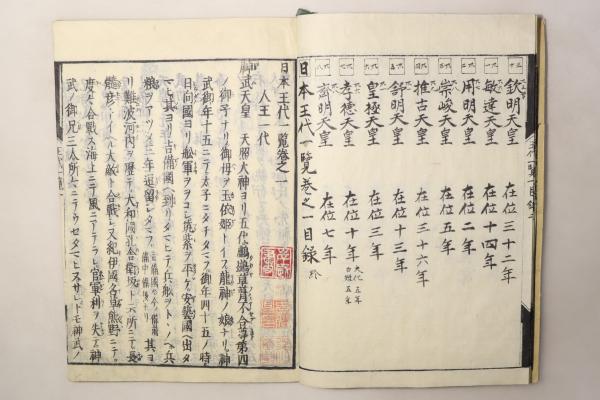 欽明天皇 在位三十二年
敏達天皇 在位十四年
用明天皇 在位二年
崇峻天皇 在位五年
推古天皇 在位三十六年
舒明天皇 在位十三年
皇極天皇 在位三年
孝徳天皇 在位十年 大化五年 白雉五年
齊明天皇 在位七年
日本王代一覧巻之一目録 終
日本王代一覧巻之一
人王一代
神武天皇 天照大神ヨリ五代鸕鷀草葺不合尊第四
ノ御子ナリ御母ヲ玉依姫トイフ龍神ノ娘ナリ神
武御年十五ニテ太子ニタチタマフ御年四十五ノ時
日向國ヨリ舩軍ヲヲコシ筑紫ヲ平ゲ安藝國ニ出タマ
ヘリ其ヨリ吉備國ニ到リタマヒテ兵舩ヲトヽノヘ兵
粮ヲアツメ三年逗留シタマフ 備中備後ナリ 其ヨ
リ難波河内ヲ歴テ大和國孔舎衛坂ト云所ニテ長
髓彦トイヘル大敵ト合戦シ又紀伊國名草熊野ニテ
度々合戦ス海上ニテ風ニアテラレ官軍利ヲ失テ神
武ノ御兄三人所々ニテウセタマヒヌサレドモ神武ノ